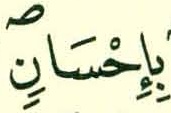 بِإِحْسَانٍۖ